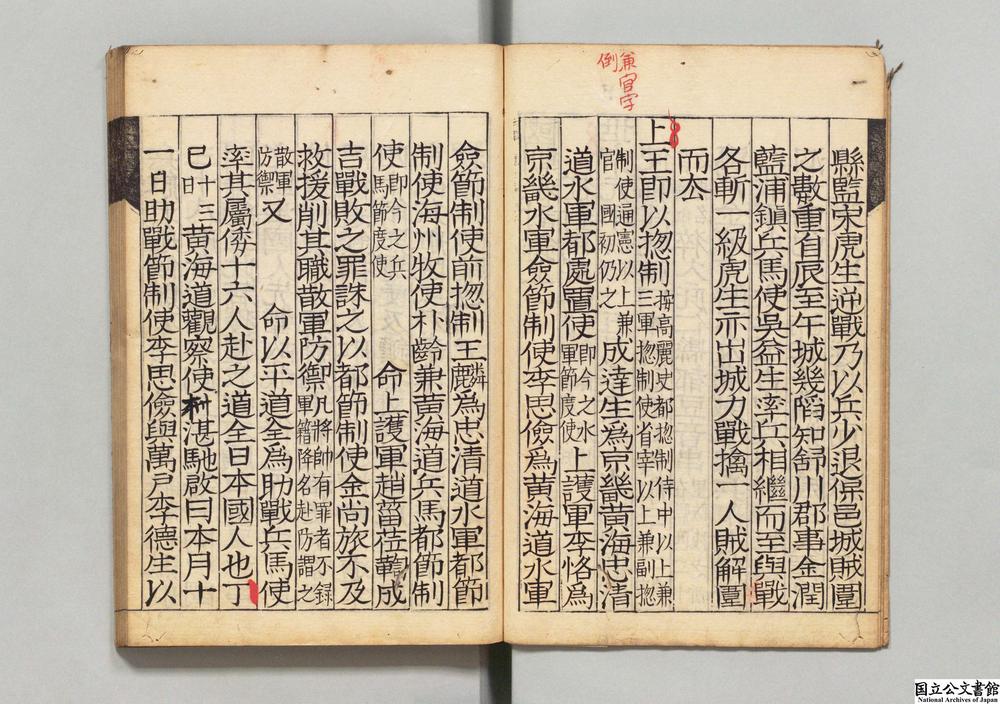 兼官字
倒
縣監宋虎生逆戰乃以兵少退保邑城賊圍
之數重自辰至午城幾陷知舒川郡事金潤
藍浦鎭兵馬使吳益生率兵相繼而至與戰
各斬一級虎生亦出城力戰擒一人賊解圍
而去
上王即以摠制按高麗史都摠制侍中以上兼三軍摠制使省宰以上兼副摠
制使通憲以上兼官 國初仍之成達生爲京畿黃海忠清
道水軍都處置使即今之水軍節度使上護軍李恪爲
京畿水軍僉節制使李思儉爲黃海道水軍
僉節制使前摠制王麟爲忠清道水軍都節
制使海州牧使朴齡兼黃海道兵馬都節制
使即今之兵馬節度使 命上護軍趙菑莅成
吉戰敗之罪誅之以都節制使金尚旅不及
救援削其職散軍防禦凡將帥有罪者不錄軍籍降名赴防謂之
散軍防禦又 命以平道全爲助戰兵馬使
率其屬倭十六人赴之道全日本國人也丁
巳十三日黃海道觀察使權湛馳啟曰本月十
一日助戰節制使李思儉與萬戶李德生以
国立公文書館
National Archives of Japan